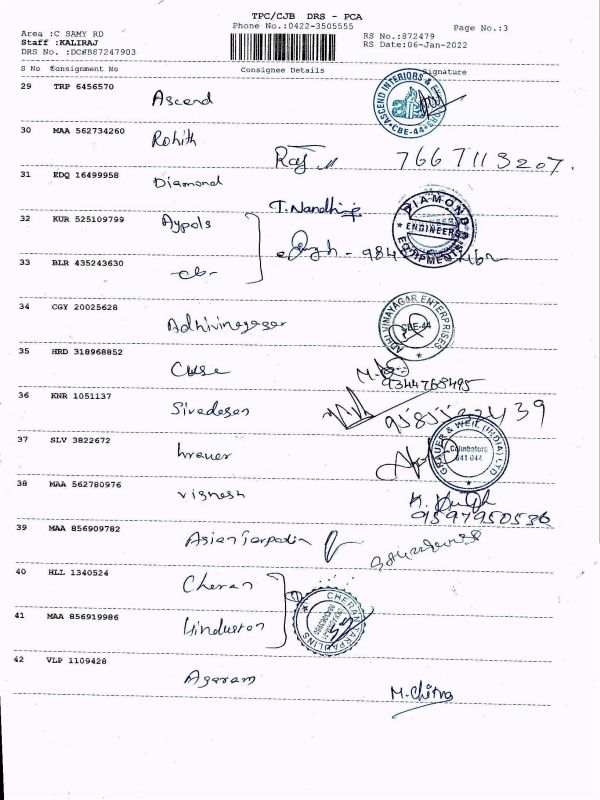 TPC/CJB DRS - PCA
Phone No.:0422-3505555
Page No.:3
Area :C SAMY RD
RS No.:872479
Staff :KALIRAJ
RS Date:06-Jan-2022
DRS No. :DC#B87247903
S No Consignment No Consignee Details Signature
29 TRP 6456570 Ascend
ASCEND INTERIORS & CBE-44
30 MAA 562734260 Rohith
Raj 7667113207.
31 EDQ 16499958 Diamond
T. Nandhini
DIAMOND ENGINEERS EQUIPMENTS
32 KUR 525109799 Aypols
33 BLR 435243630 -do-
34 CGY 20025628 Adhivinayagar
ADHIVINAYAGAR ENTERPRISES CBE-44
35 HRD 318968852
9344768495
36 KNR 1051137 Sivadesan
37 SLV 3822672
GRAUER & WEIL (INDIA) LTD Coimbatore 641 044
38 MAA 562780976 Vignesh
9597950536
39 MAA 856909782 Asian Tarpaulin
40 HLL 1340524 Cheran
41 MAA 856919986 Hindustan
CHERAN TARPAULINS
42 VLP 1109428 Agaram
M. Chitra